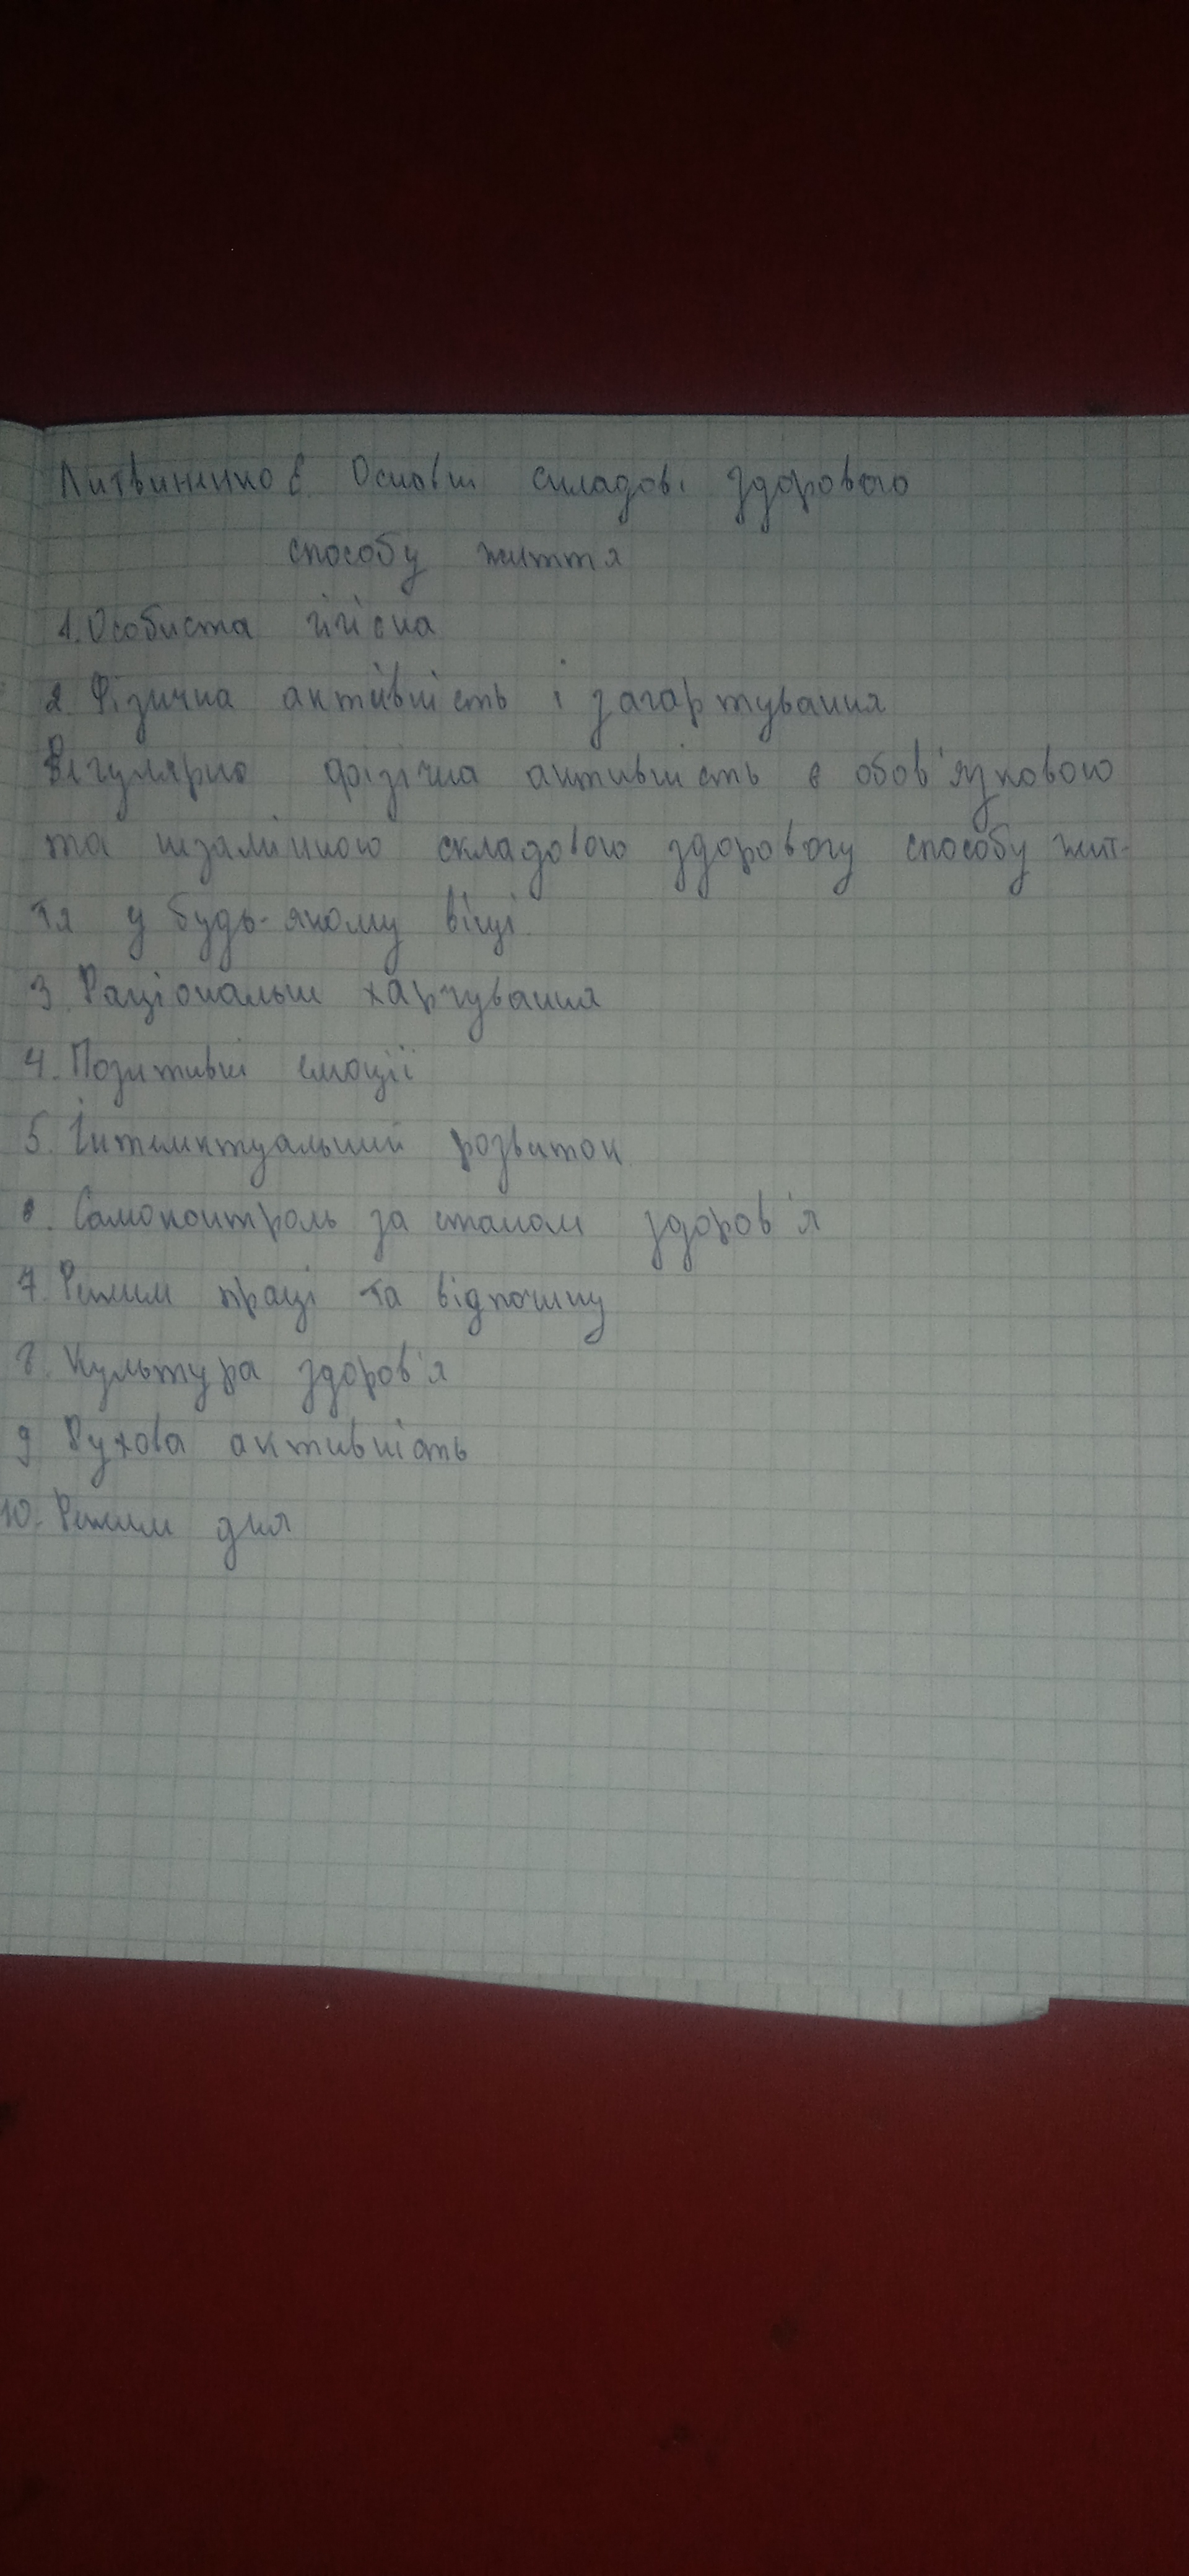 Литвиненко Є. Основні складові здорового
способу життя
1. Особиста гігієна
2. Фізична активність і загартування
Регулярно фізічна активність є обов'язковою
та незамінною складовою здоровогу способу жит-
тя у будь-якому віці.
3. Раціональне харчування
4. Позитивні емоції
5. Інтелектуальний розвиток
6. Самоконтроль за станом здоров'я
7. Режим праці та відпочинку
8. Культура здоров'я
9 Рухова активність
10. Режим дня